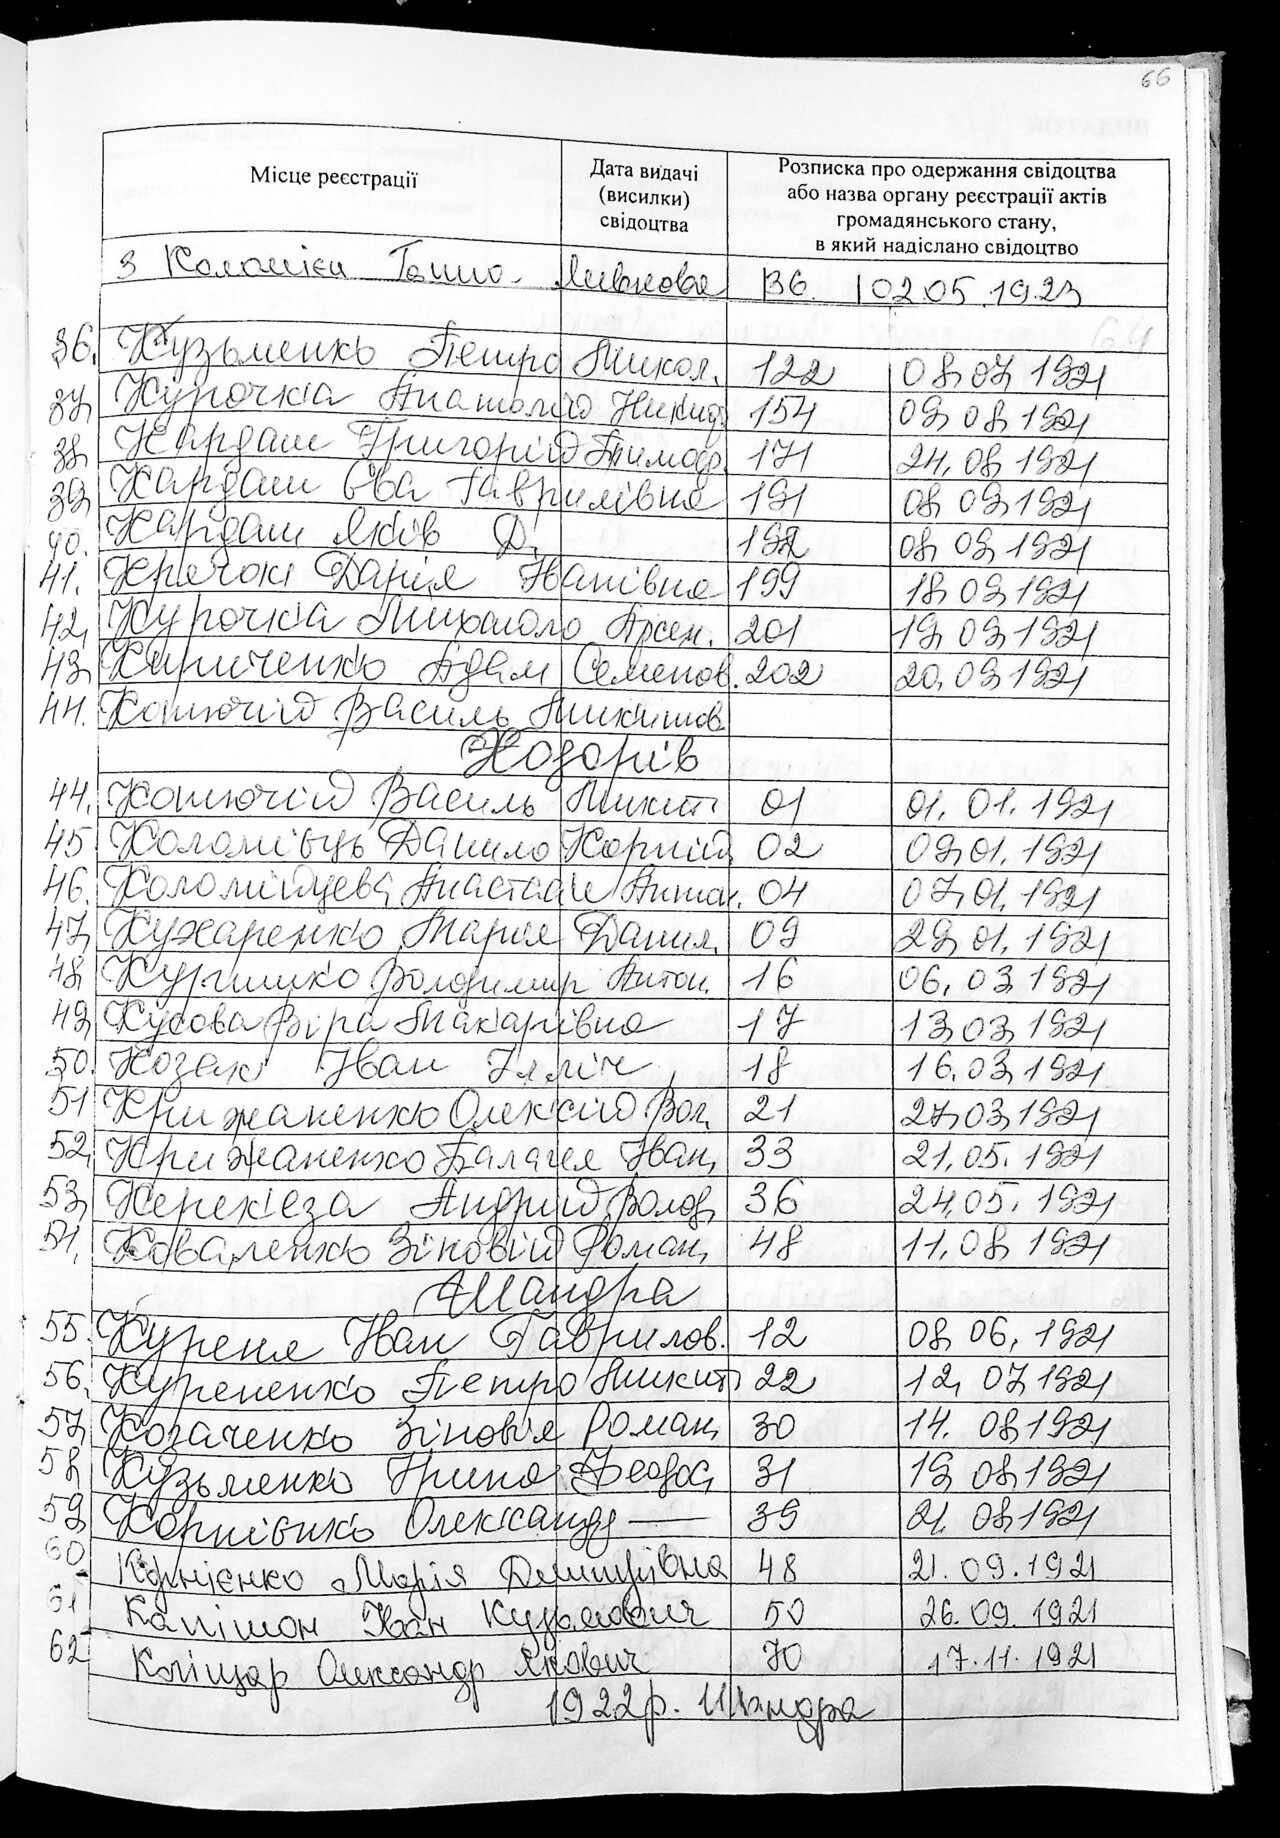 66
Місце реєстрації
Дата видачі
(висилки)
свідоцтва
Розписка про одержання свідоцтва
або назва органу реєстрації актів
громадянського стану,
в який надіслано свідоцтво
3 Коломієц Ганна 36 02.05.1923
64
36. Кузьменко Петро Микол. 122 08.07.1921
37. Курочка Анатолій Никид. 154 09.08.1921
38. Кардаш Григорій Тимоф. 171 24.08.1921
39. Кардаш Єва Гаврилівна 191 08.09.1921
40. Кардаш Яків Д. 192 08.09.1921
41. Крячок Дарія Іванівна 199 18.09.1921
42. Курочка Михайло Арсен. 201 19.09.1921
43. Кириченко Адам Семенов. 202 20.09.1921
44. Конючий Василь Микитов.
Козарів
44. Конючий Василь Микит. 01 01.01.1921
45. Коломієць Данило Корній. 02 09.01.1921
46. Коломійцева Анастасія Антон. 04 07.01.1921
47. Кухаренко Марія Данил. 09 29.01.1921
48. Володимир Антон. 16 06.03.1921
49. Кусова Віра Макарівна 17 13.03.1921
50. Козак Іван Ілліч 18 16.03.1921
51. Крижаненко Олексій Вол. 21 27.03.1921
52. Крижаненко Палагея Іван. 33 21.05.1921
53. Керекеза Андрій Волод. 36 24.05.1921
54. Коваленко Зіновій Роман. 48 11.08.1921
Шандра
55. Куреня Іван Гаврилов. 12 08.06.1921
56. Курененко Петро Микит. 22 12.07.1921
57. Козаченко Зіновія Роман. 30 14.08.1921
58. Кузьменко Ірина Феодос. 31 19.08.1921
59. Корнієнко Олександр 39 21.08.1921
60 Корнієнко Марія Дмитрівна 48 21.09.1921
61 Капішон Іван Кузьмович 50 26.09.1921
62 Кліщар Олександр Якович 70 17.11.1921
1922р. Шандра